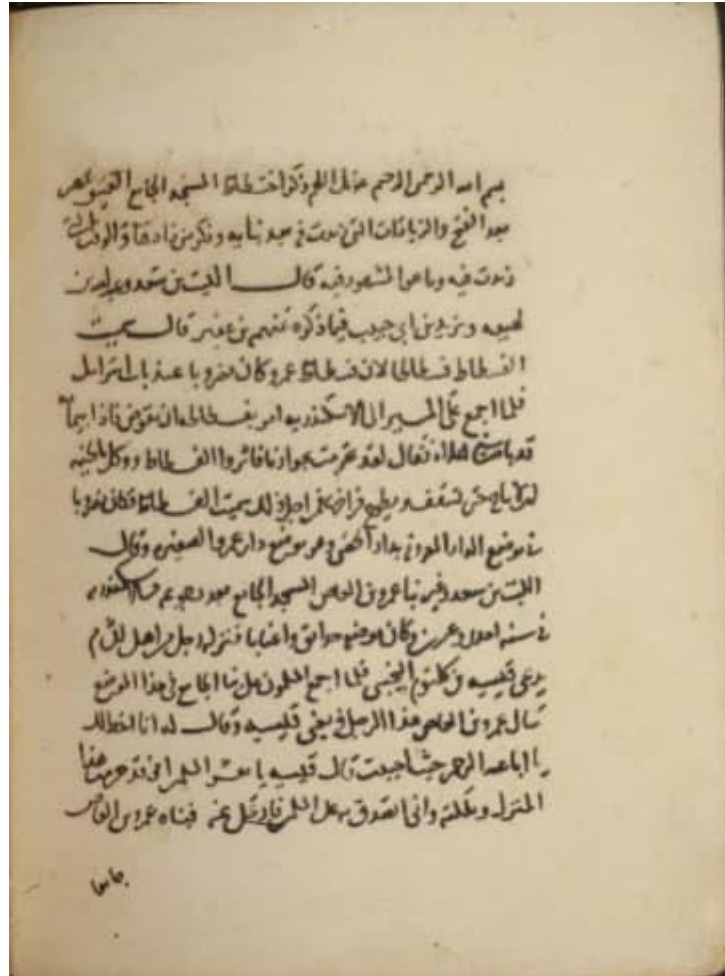 بسم الله الرحمن الرحيم عونك اللهم ذكر اختطاط المسجد الجامع العتيق بمصر
بعد الفتح والزيادات التى زيدت فى بعد بنايه وذكر من زاد فيه والوقت الذى
زيدت فيه وما هو المشهود فيه قال الليث بن سعد وعبد الله بن
لهيعه ويزيد بن ابى حبيب فيما ذكره عنهم بن عفير قال سميت
الفسطاط فسطاطا لان فسطاط عمرو كان مضروبا عند باب
فلما اجمع على المسير الى الاسكندريه امر بفسطاطه ان يقوض فاذا بيمامه
قد باضت اعلاه فقال لقد تحرمت بجوارنا فاقروا الفسطاط ووكل
حتى تنقف وتطير فراخها فلذلك سميت الفسطاط فكان مضروبا
فى موضع الدار المعروفه بدار وهو موضع دار عمرو الصغير وقال
الليث بن سعد وغيره بنا عمرو بن العاص المسجد الجامع بعد رجوعه من الاسكندريه
فى سنه احدى وعشرين وكان موضعه حدايق واعنابا فنزله رجل من اهل الشام
يدعى قليسبه بن كلثوم التجيبى فلما اجمع المسلمون على بنا الجامع فى هذا الموضع
سال عمرو بن العاص هذا الرجل يعنى قليسبه وقال له انا اخط لك
يا ابا عبد الرحمن حيث احببت قال قليسبه يا معشر المسلمين انى قد حزت هذا
المنزل وملكته وانى اتصدق به على المسلمين وارتحل عنه فبناه عمرو بن العاص
جامعا